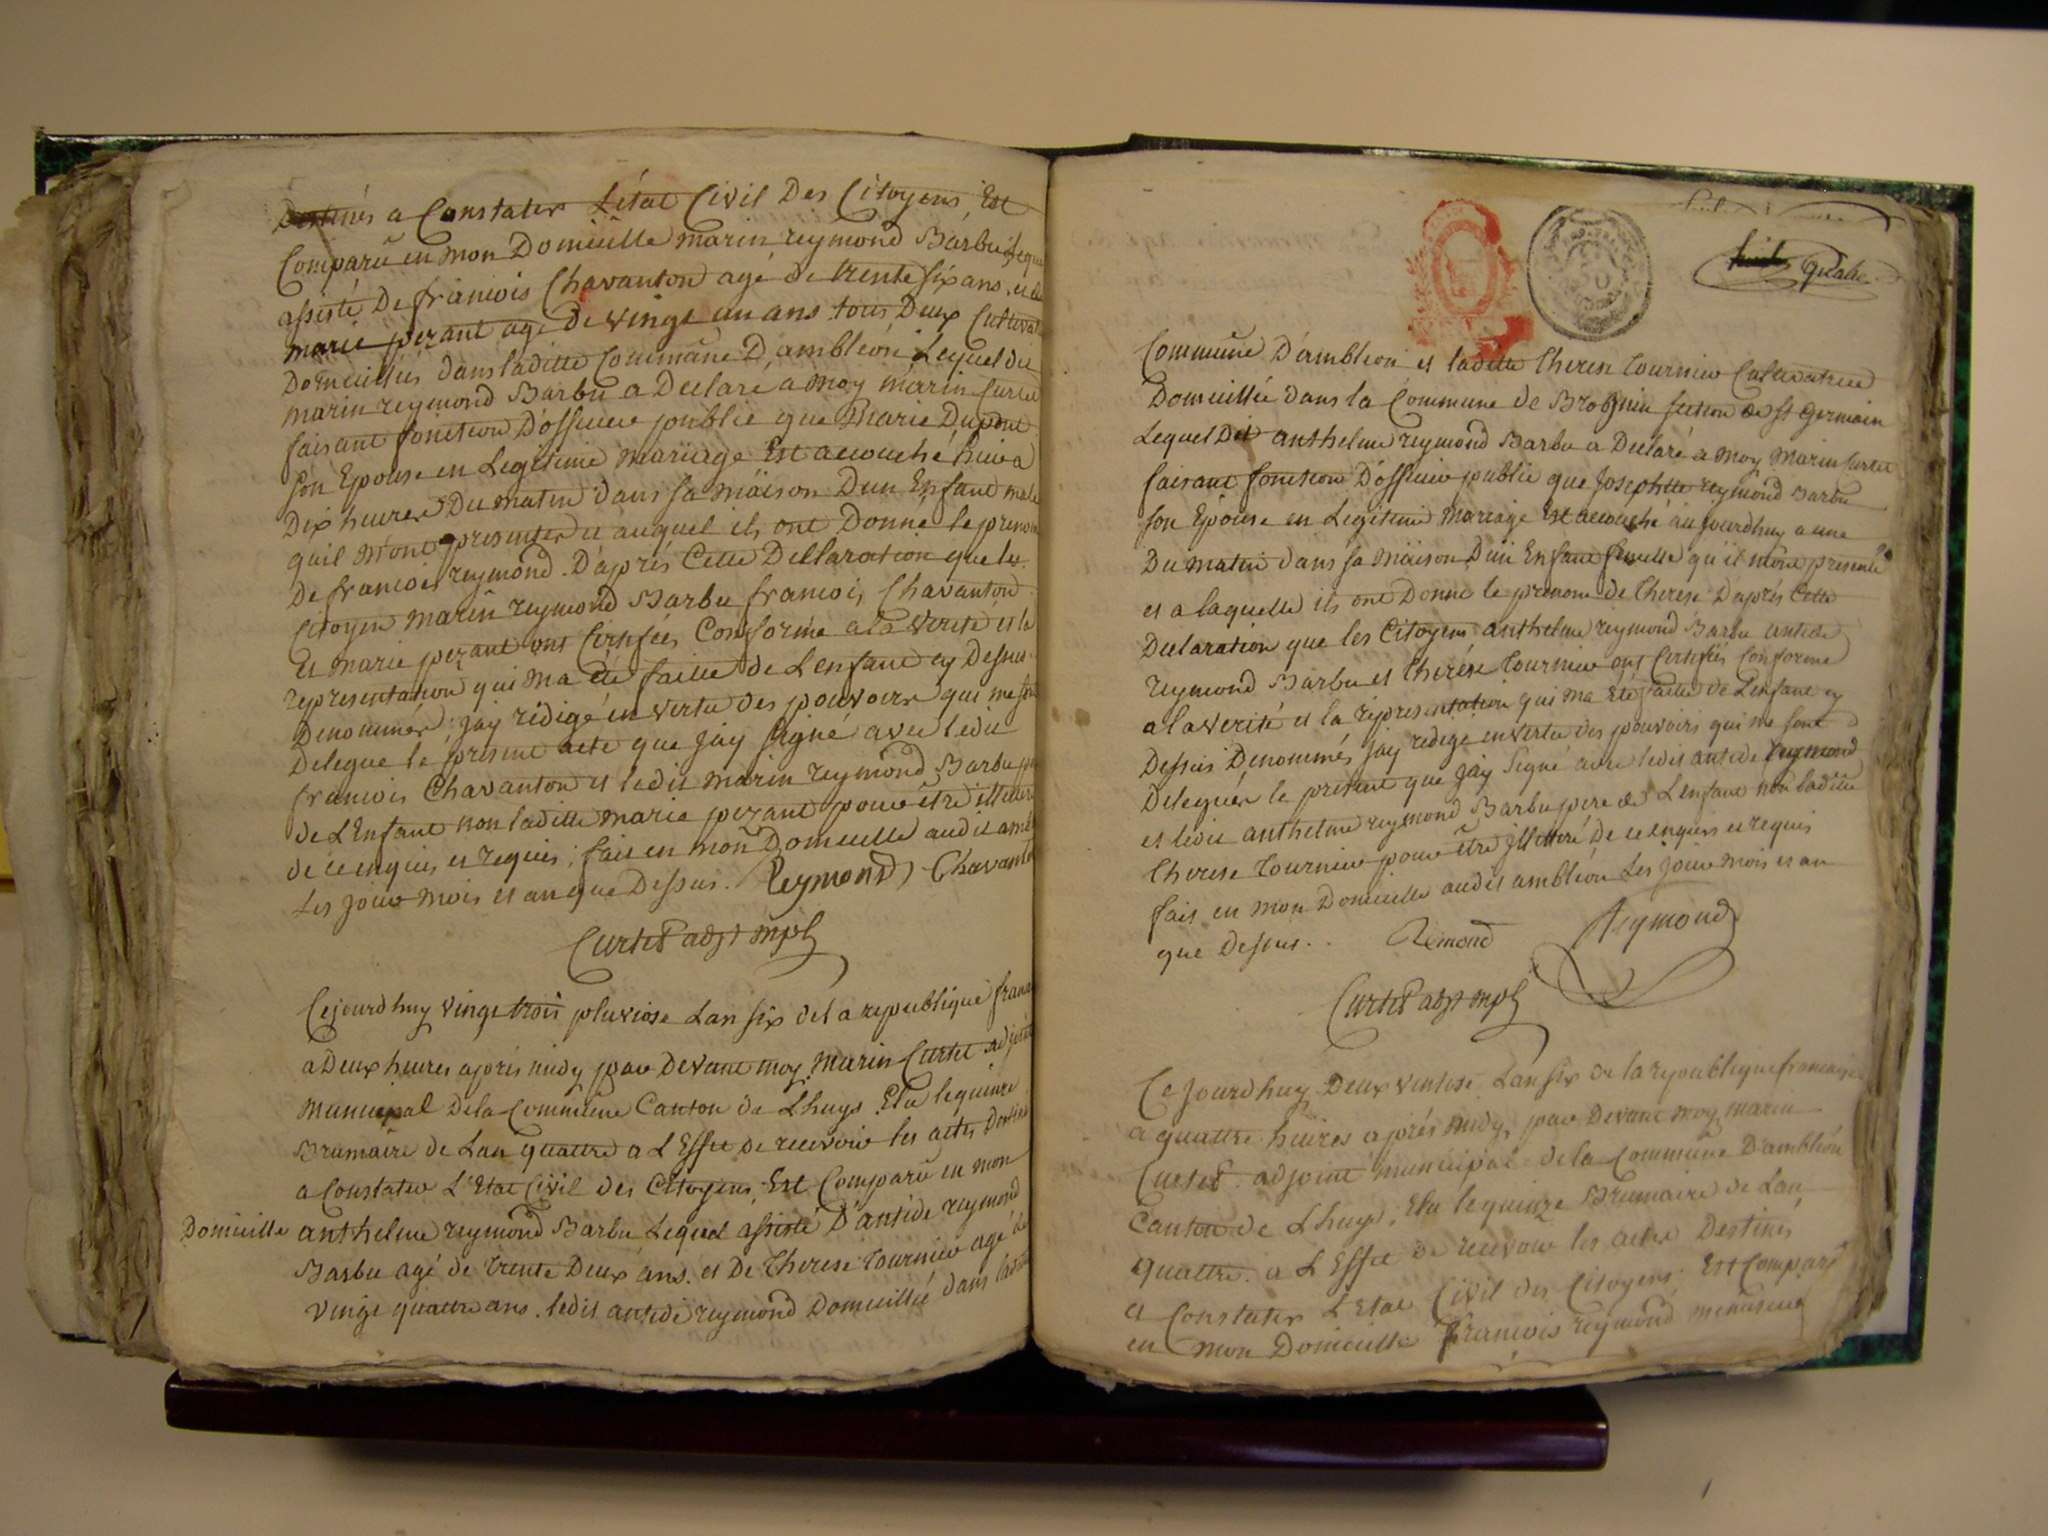 Destinés a Constater L'état Civil Des Citoyens Est
Comparu en mon Domicille marin reymond Barbu Lequel
assisté De francois Chavanton agé de trente six ans, et de
marie pezant agé De vingt un ans tous Deux Cultivat
Domicillies dans laditte Commune D'ambléon Lequel dit
marin reymond Barbu a Declaré a moy marin Curtet
faisant fonction D'officier public que Marie Dupont
son Epouse en Legitime mariage Est accouché hier a
Dix heures Du matin dans sa maison Dun Enfant male
quil m'ont presenter et auquel ils ont Donné le prenom
De francois reymond. D'aprés Cette Dellaration que les
Citoyen marin reymond Barbu francois Chavanton
Et marie pezant ont Certifiés Conforme a la verité et la
representation qui ma été faitte de L'enfant cy Dessus
Denommér, jay rédigé en vertu des pouvoirs qui me sont
Delegue le présent acte que jay signé avec ledit
francois Chavanton et ledit marin reymond Barbu pere
de L'Enfant non laditte marie pezant pour être illittere
de ce enquis et requis; fait en mon Domicille audit amb
Les jour mois et an que Dessus. Reymond Chavanton
Curtet adjt mpl
Cejourd'huy vingt trois pluviose Lan six de la republique franc
a Deux heures apris midy par Devant moy Marin Curtet adjoint
Municipal De la Commune Canton de Lhuys Elu le quinze
Brumaire de Lan quattre a L'Effet de recevoir les actes Destinés
a Constater L'Etat Civil des Citoyens, Est Comparu en mon
Domicille anthelme reymond Barbu Lequel assisté D'antide reymond
Barbu agé de trente Deux ans. et De Therese Tournier agé de
vingt quattre ans. ledit antide reymond Domicillié dans laditte
huit quatre
Commune D'ambleon et laditte Therese Tournier Cultivatrice
Domicillié dans la Commune de Brognin section de st Germain
Lequel Dit anthelme reymond Barbu a Declaré a moy Marin Curtet
faisant fonction D'officier public que Josephtte reymond Barbu
son Epouse en Legitime Mariage Est accouché aujourdhuy a une
Du matin dans sa maison D'un Enfant femelle qu'il m'ont presenté
et a laquelle ils ont Donné le prenom de Therese D'aprés Cette
Declaration que les Citoyens anthelme reymond Barbu antide
reymond Barbu et Therése Tournier ont Certifiés Conforme
a la verité et la representation qui ma été faitte de L'enfant cy
Dessus Denommés jay redigé en vertu des pouvoirs qui me sont
Deleguér le présent que jay Signé avec ledit antide reymond
et ledit anthelme reymond Barbu pere de L'enfant non laditte
Therese Tournier pour être jllittéré de ce enquis et requis
fait en mon Domicille audit ambléon Les jour mois et an
que Dessus. Remond Reymond
Curtet adjt mpl
Ce jourdhuy Deux ventose Lan six de la republique francaise
a quattre heures aprés midy par Devant moy marin
Curtet adjoint municipal de la Commune D'ambléon
Canton de Lhuys, Elu le quinze Brumaire de Lan
quattre a L'Effet de recevoir les actes Destinés
a Constater L'Etat Civil des Citoyens Est Comparu
en mon Domicille francois reymond menusier